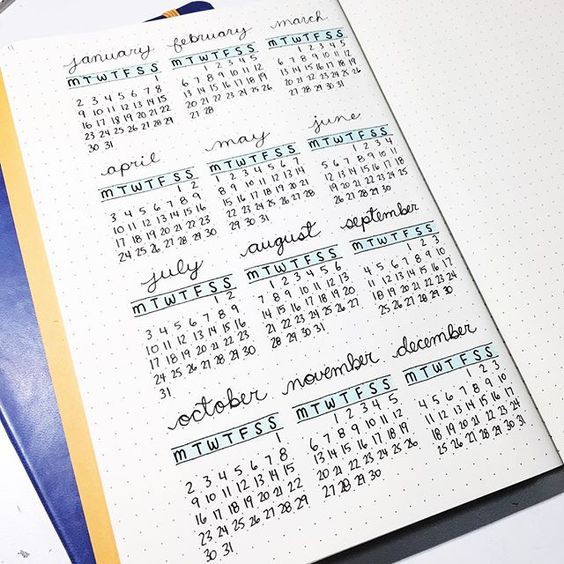 january
M T W T F S S
1
2 3 4 5 6 7 8
9 10 11 12 13 14 15
16 17 18 19 20 21 22
23 24 25 26 27 28 29
30 31
february
M T W T F S S
1 2 3 4 5
6 7 8 9 10 11 12
13 14 15 16 17 18 19
20 21 22 23 24 25 26
27 28
march
M T W T F S S
1 2 3 4 5
6 7 8 9 10 11 12
13 14 15 16 17 18 19
20 21 22 23 24 25 26
27 28 29 30 31
april
M T W T F S S
1 2
3 4 5 6 7 8 9
10 11 12 13 14 15 16
17 18 19 20 21 22 23
24 25 26 27 28 29 30
may
M T W T F S S
1 2 3 4 5 6 7
8 9 10 11 12 13 14
15 16 17 18 19 20 21
22 23 24 25 26 27 28
29 30 31
june
M T W T F S S
1 2 3 4
5 6 7 8 9 10 11
12 13 14 15 16 17 18
19 20 21 22 23 24 25
26 27 28 29 30
july
M T W T F S S
1 2
3 4 5 6 7 8 9
10 11 12 13 14 15 16
17 18 19 20 21 22 23
24 25 26 27 28 29 30
31
august
M T W T F S S
1 2 3 4 5 6
7 8 9 10 11 12 13
14 15 16 17 18 19 20
21 22 23 24 25 26 27
28 29 30 31
september
M T W T F S S
1 2 3
4 5 6 7 8 9 10
11 12 13 14 15 16 17
18 19 20 21 22 23 24
25 26 27 28 29 30
october
M T W T F S S
1
2 3 4 5 6 7 8
9 10 11 12 13 14 15
16 17 18 19 20 21 22
23 24 25 26 27 28 29
30 31
november
M T W T F S S
1 2 3 4 5
6 7 8 9 10 11 12
13 14 15 16 17 18 19
20 21 22 23 24 25 26
27 28 29 30
december
M T W T F S S
1 2 3
4 5 6 7 8 9 10
11 12 13 14 15 16 17
18 19 20 21 22 23 24
25 26 27 28 29 30 31